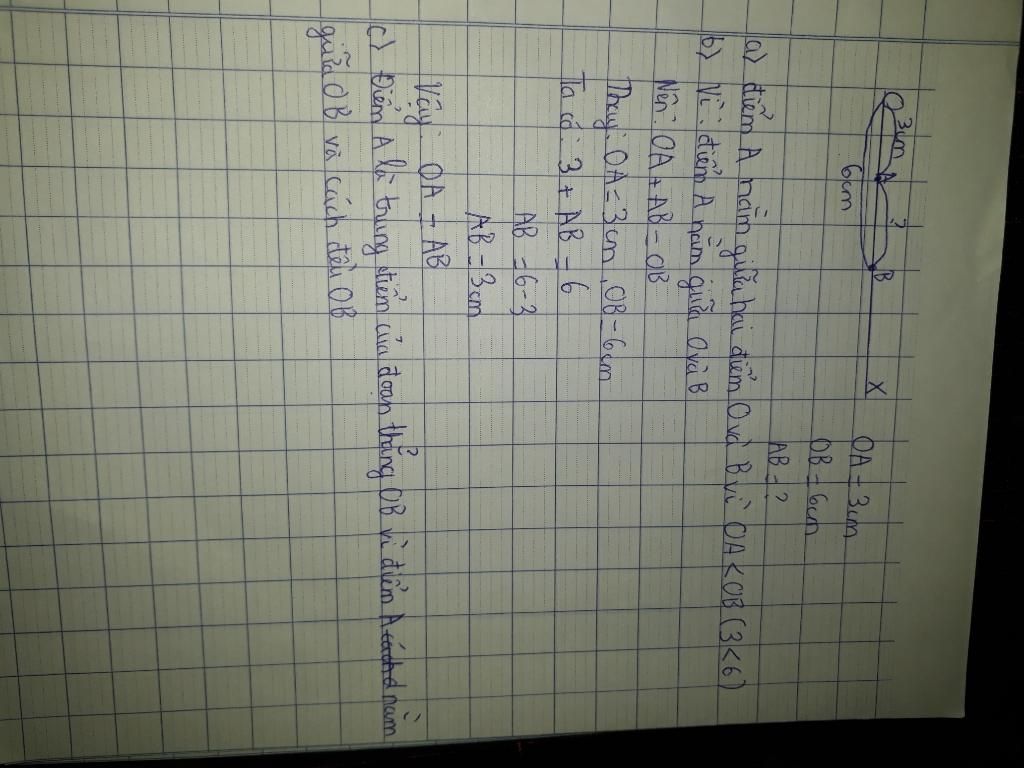 O 3cm A ? B X
6cm
OA = 3cm
OB = 6cm
AB = ?
a) điểm A nằm giữa hai điểm O và B vì OA < OB (3 < 6)
b) Vì: điểm A nằm giữa O và B
Nên: OA + AB = OB
Thay: OA = 3cm, OB = 6cm
Ta có: 3 + AB = 6
AB = 6 - 3
AB = 3cm
Vậy: OA = AB
c) Điểm A là trung điểm của đoạn thẳng OB vì điểm A nằm
giữa OB và cách đều OB